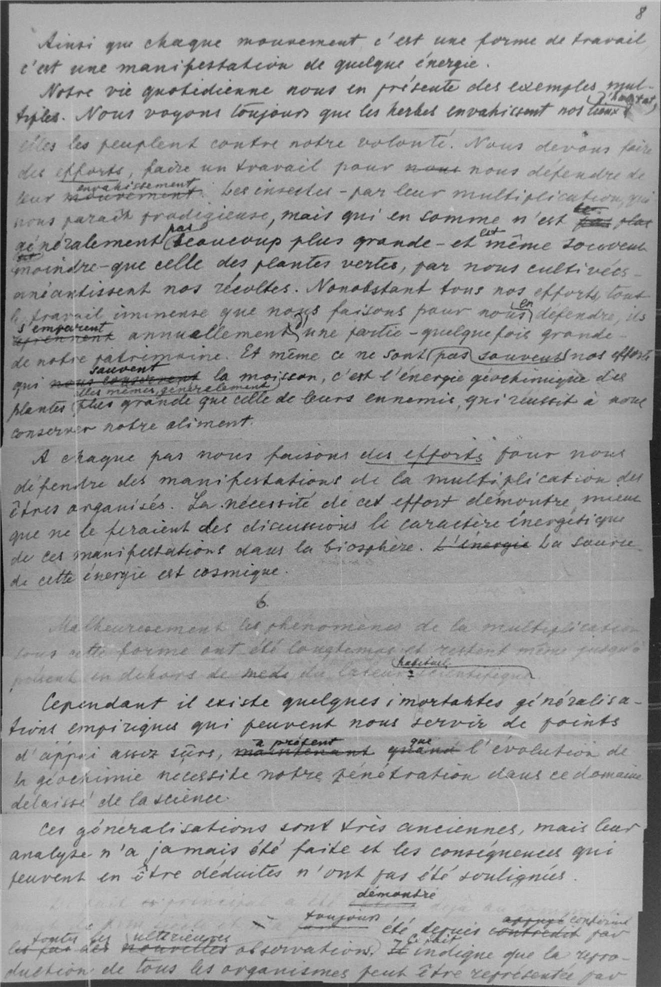 8
Ainsi que chaque mouvement c'est une forme de travail
c'est une manifestation de quelque énergie.
Notre vie quotidienne nous en présente des exemples mul-
tiples. Nous voyons toujours que les herbes envahissent nos
elles les peuplent contre notre volonté. Nous devons faire
des efforts, faire un travail pour nous nous défendre de
envahissement
leur mouvement. Les insectes - par leur multiplication, qui
nous paraît prodigieuse, mais qui en somme n'est pas plus
généralement pas beaucoup plus grande - et est même souvent
moindre - que celle des plantes vertes, par nous cultivées -
anéantissent nos récoltes. Nonobstant tous nos efforts, tout
le travail immense que nous faisons pour nous en défendre, ils
s'emparent annuellement une partie - quelquefois grande -
de notre patrimoine. Et même ce ne sont pas souvent nos efforts
sauvent
qui nous conservent la moisson, c'est l'énergie géochimique des
elles mêmes, généralement
plantes plus grande que celle de leurs ennemis, qui réussit à nous
conserver notre aliment.
A chaque pas nous faisons des efforts pour nous
défendre des manifestations de la multiplication des
êtres organisés. La nécessité de cet effort démontre, mieux
que ne le feraient des discussions le caractère énergétique
de ces manifestations dans la biosphère. L'énergie La source
de cette énergie est cosmique.
6
Malheuresement les phénomènes de la multiplication
sous cette forme ont été longtemps et restent même jusqu'à
présent en dehors de
habituel
scientifique
Cependant il existe quelques imortantes généralisa-
tions empiriques qui peuvent nous servir de points
à présent que
d'appui assez sûrs, maintenant quand l'évolution de
la géochimie necessite notre penetration dans ce domaine
délaissé de la science.
Ces généralisations sont très anciennes, mais leur
analyse n'a jamais été faite et les conséquences qui
peuvent en être déduites n'ont pas été soulignées.
démontré
toujours été depuis contredit confirmé par
toutes les ultérieures
des nouvelles observations. indique que la repro-
duction de tous les organismes peut être représentée par